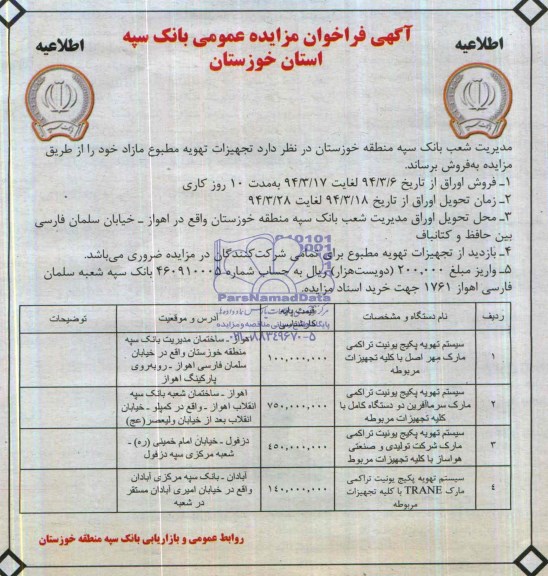 آگهی فراخوان مزایده عمومی بانک سپه
استان خوزستان
اطلاعیه
اطلاعیه
مدیریت شعب بانک سپه منطقه خوزستان در نظر دارد تجهیزات تهویه مطبوع مازاد خود را از طریق
مزایده به‌فروش برساند.
۱ـ فروش اوراق از تاریخ ۹۴/۳/۶ لغایت ۹۴/۳/۱۷ به‌مدت ۱۰ روز کاری
۲ـ زمان تحویل اوراق از تاریخ ۹۴/۳/۱۸ لغایت ۹۴/۳/۲۸
۳ـ محل تحویل اوراق مدیریت شعب بانک سپه منطقه خوزستان واقع در اهواز ـ خیابان سلمان فارسی
بین حافظ و کتانباف
۴ـ بازدید از تجهیزات تهویه مطبوع برای تمامی شرکت‌کنندگان در مزایده ضروری می‌باشد.
۵ـ واریز مبلغ ۲۰۰،۰۰۰ (دویست‌هزار) ریال به حساب شماره ۴۶۰۹۱۰۰۰۵ بانک سپه شعبه سلمان
فارسی اهواز ۱۷۶۱ جهت خرید اسناد مزایده.
ردیف نام دستگاه و مشخصات قیمت پایه کارشناسی آدرس و موقعیت توضیحات
۱ سیستم تهویه پکیج یونیت تراکمی مارک مهر اصل با کلیه تجهیزات مربوطه ۱۰۰,۰۰۰,۰۰۰ اهواز- ساختمان مدیریت بانک سپه منطقه خوزستان واقع در خیابان سلمان فارسی اهواز - روبه‌روی پارکینگ اهواز
۲ سیستم تهویه پکیج یونیت تراکمی مارک سرماآفرین دو دستگاه کامل با کلیه تجهیزات مربوطه ۷۵۰,۰۰۰,۰۰۰ اهواز ـ ساختمان شعبه بانک سپه انقلاب اهواز ـ واقع در کمپلو ـ خیابان انقلاب بعد از خیابان ولیعصر(عج)
۳ سیستم تهویه پکیج یونیت تراکمی مارک شرکت تولیدی و صنعتی هواساز با کلیه تجهیزات مربوط ۴۵۰,۰۰۰,۰۰۰ دزفول ـ خیابان امام خمینی (ره) ـ شعبه مرکزی سپه دزفول
۴ سیستم تهویه پکیج یونیت تراکمی مارک TRANE با کلیه تجهیزات مربوطه ۱۴۰,۰۰۰,۰۰۰ آبادان - بانک سپه مرکزی آبادان واقع در خیابان امیری آبادان مستقر در شعبه
روابط عمومی و بازاریابی بانک سپه منطقه خوزستان
ParsNamadData